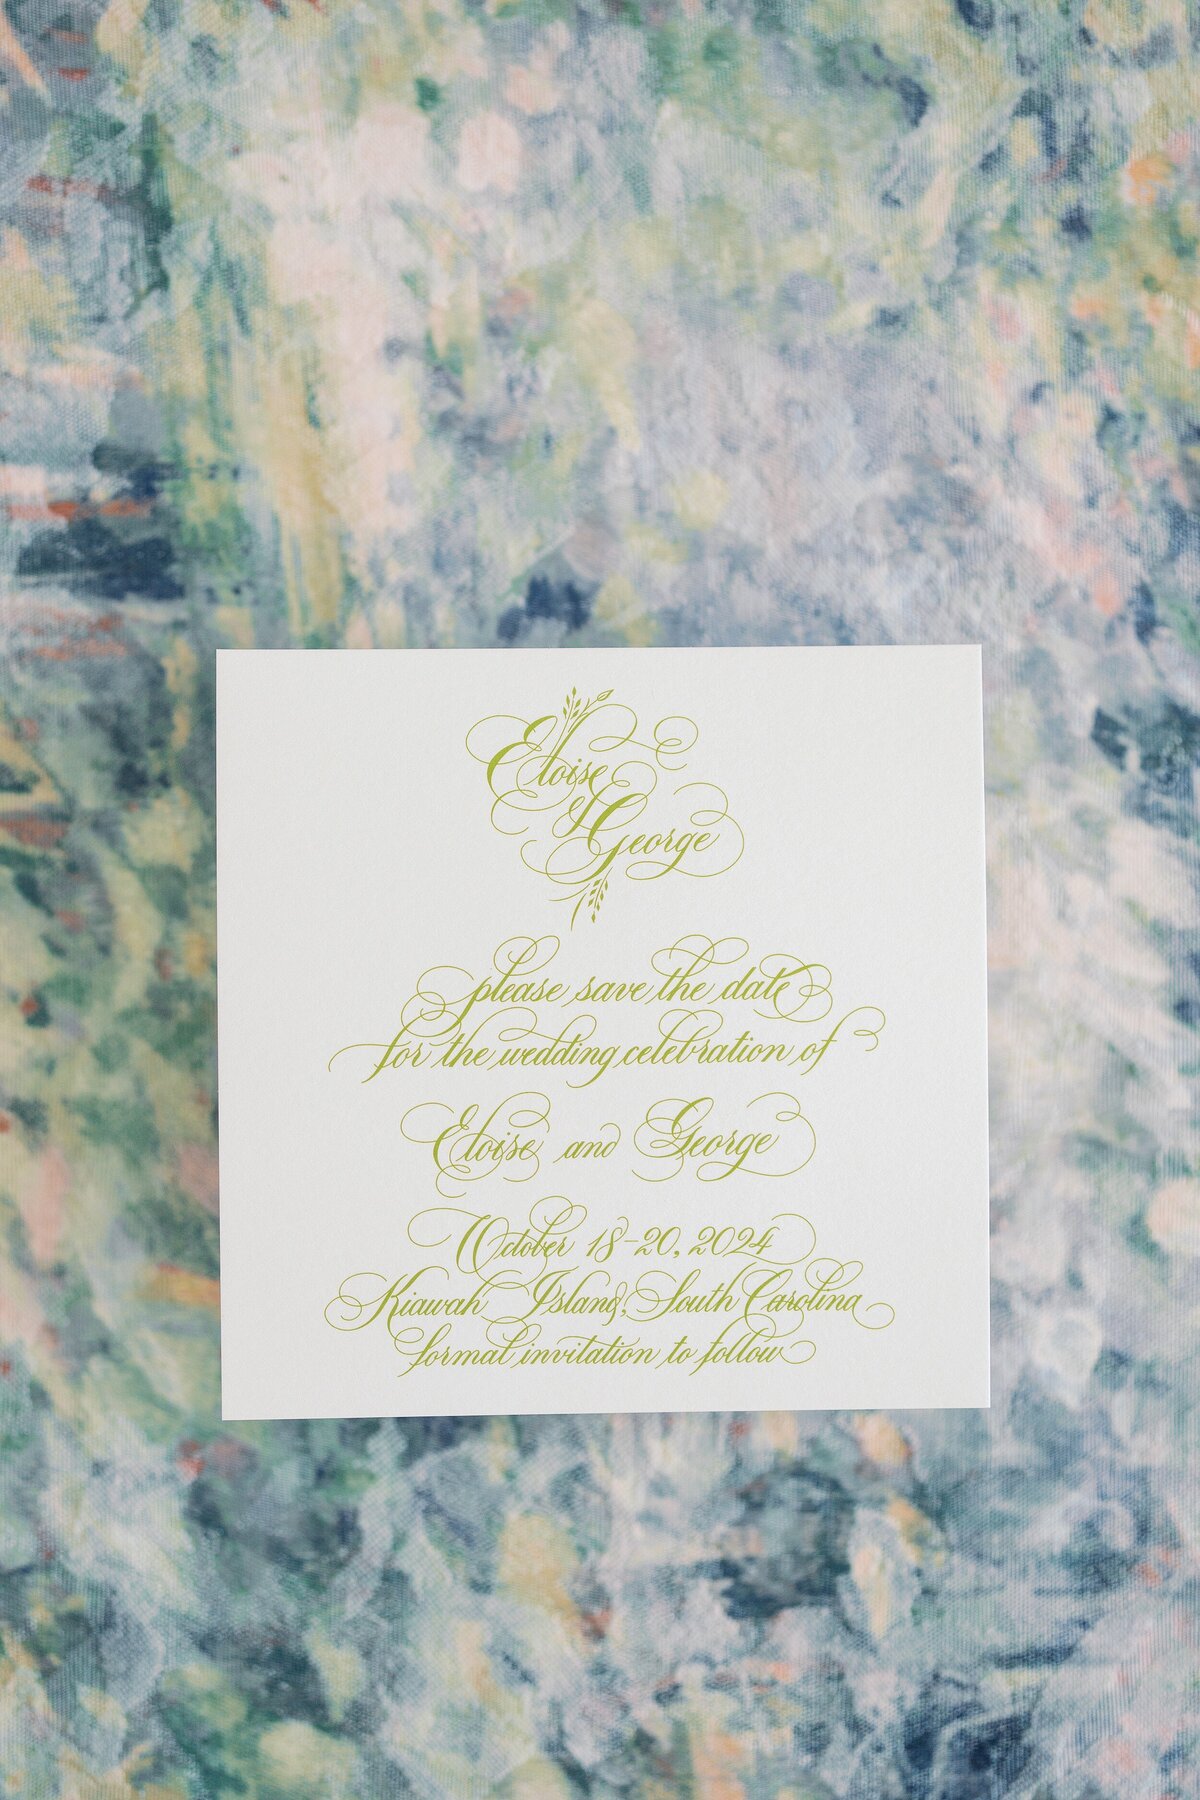 Eloise
&
George
please save the date
for the wedding celebration of
Eloise and George
October 18-20, 2024
Kiawah Island, South Carolina
formal invitation to follow